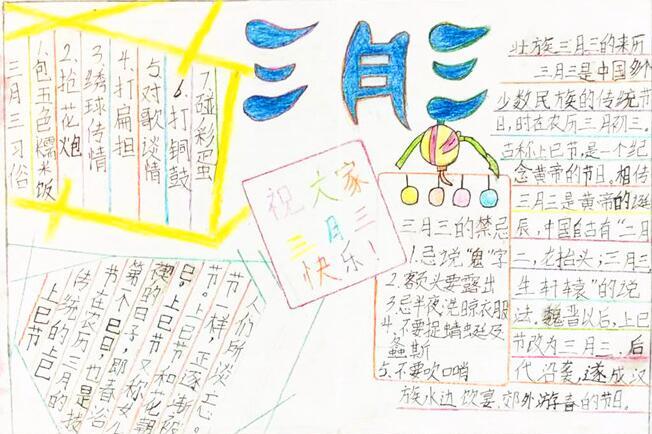 三月三
三月三习俗
1.包五色糯米饭
2.抢花炮
3.绣球传情
4.打扁担
5.对歌谈情
6.打铜鼓
7.碰彩蛋
祝大家
三月三
快乐!
壮族三月三的来历
三月三是中国多个
少数民族的传统节
日,时在农历三月初三。
古称上巳节,是一个纪
念黄帝的节日。相传
三月三是黄帝的诞
辰,中国自古有“二月
二,龙抬头;三月三,
生轩辕”的说
法。魏晋以后,上巳
节改为三月三,后
代沿袭,遂成汉
族水边饮宴、郊外游春的节日。
三月三的禁忌
1.忌说“鬼”字
2.额头要露出
3.忌半夜洗晾衣服
4.不要捉蜻蜓及
螽斯
5.不要吹口哨
上巳节
传统的上巳
节在农历三月的
第一个巳日,即春浴
的日子,又称女儿
上巳节和花朝
节一样,正逐渐
人们所淡忘。